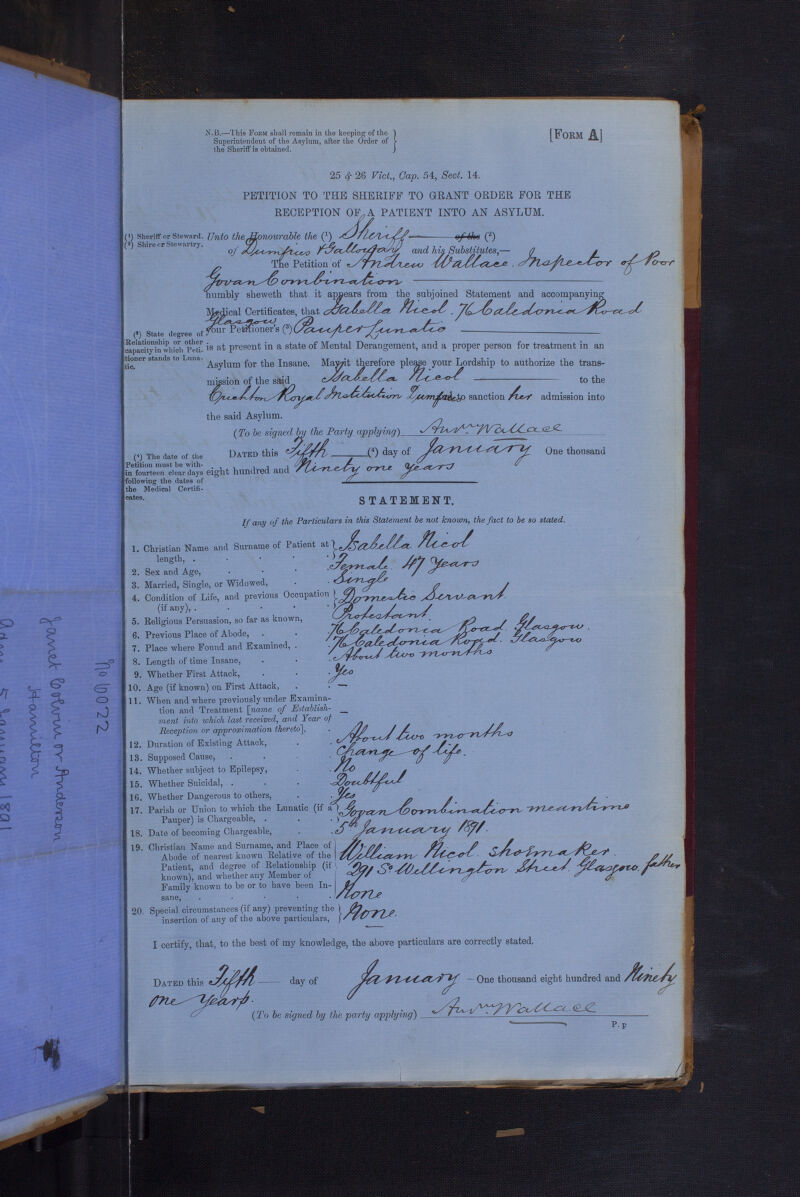 N.B.—This Form shall remain in the keeping of the
Superintendent of the Asylum, after the Order of
the Sheriff is obtained.
[Form A]
25 & 26 Vict., Cap. 54, Sect. 14.
PETITION TO THE SHERIFF TO GRANT ORDER FOR THE
RECEPTION OF A PATIENT INTO AN ASYLUM.
(¹) Sheriff or Steward.
(²) Shire or Stewartry.
Unto the Honourable the (¹) Sheriff of the (²)
of Dumfries & Galloway and his Substitutes,—
The Petition of Andrew Wallace. Inspector of Poor
Govan Combination
humbly sheweth that it appears from the subjoined Statement and accompanying
Medical Certificates, that Isabella Nicol. 76 Caledonia Road
Glasgow
(³) State degree of
Relationship or other
capacity in which Peti-
tioner stands to Luna-
tic.
your Petitioner's (³) Pauper Lunatic
is at present in a state of Mental Derangement, and a proper person for treatment in an
Asylum for the Insane. May it therefore please your Lordship to authorize the trans-
mission of the said Isabella Nicol to the
Crichton Royal Institution Dumfries to sanction her admission into
the said Asylum.
(To be signed by the Party applying) Andw. Wallace
(⁴) The date of the
Petition must be with-
in fourteen clear days
following the dates of
the Medical Certifi-
cates.
Dated this Fifth (⁴) day of January One thousand
eight hundred and Ninety one years
STATEMENT.
If any of the Particulars in this Statement be not known, the fact to be so stated.
1. Christian Name and Surname of Patient at length, . Isabella Nicol
2. Sex and Age, Female 47 Years
3. Married, Single, or Widowed, Single
4. Condition of Life, and previous Occupation (if any), . Domestic Servant
5. Religious Persuasion, so far as known, Protestant
6. Previous Place of Abode, 76 Caledonia Road. Glasgow.
7. Place where Found and Examined, . 76 Caledonia Road. Glasgow
8. Length of time Insane, About two months
9. Whether First Attack, Yes
10. Age (if known) on First Attack, —
11. When and where previously under Examina-
tion and Treatment [name of Establish-
ment into which last received, and Year of
Reception or approximation thereto], —
12. Duration of Existing Attack, About two months
13. Supposed Cause, Change of life.
14. Whether subject to Epilepsy, No
15. Whether Suicidal, . Doubtful
16. Whether Dangerous to others, Yes
17. Parish or Union to which the Lunatic (if a
Pauper) is Chargeable, . Govan Combination meantime
18. Date of becoming Chargeable, 5th January 1891.
19. Christian Name and Surname, and Place of
Abode of nearest known Relative of the
Patient, and degree of Relationship (if
known), and whether any Member of
Family known to be or to have been In-
sane,
William Nicol shoemaker
291 So Wellington Street Glasgow. father
None
20. Special circumstances (if any) preventing the
insertion of any of the above particulars, None.
I certify, that, to the best of my knowledge, the above particulars are correctly stated.
Dated this Fifth day of January One thousand eight hundred and Ninety
one years.
(To be signed by the party applying) Andw. Wallace
P. p
No 6022
Janet Colvin or Anderson
Hamilton